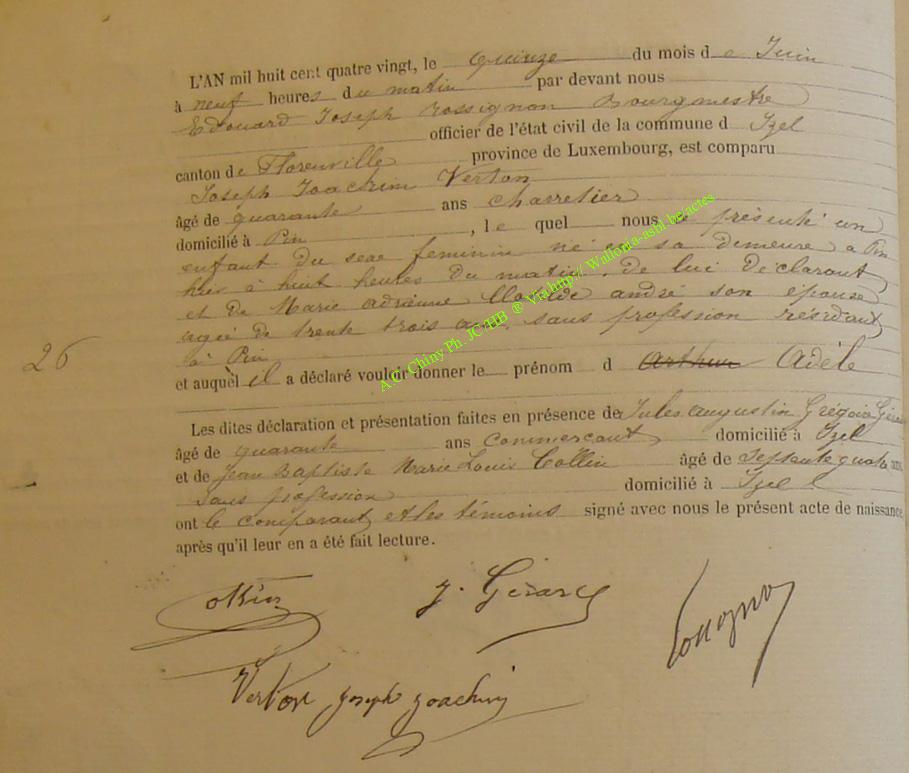 L'AN mil huit cent quatre vingt, le quinze du mois de Juin
à neuf heures du matin par devant nous
Edouard Joseph Rossignon Bourgmestre
officier de l'état civil de la commune d Izel
canton de Florenville province de Luxembourg, est comparu
Joseph Joachim Verton
âgé de quarante ans charretier
domicilié à Pin, le quel nous a présenté un
enfant du sexe feminin né en sa demeure à Pin
hier à huit heures du matin, de lui déclarant
et de Marie adrienne Clotilde andré son épouse
agée de trente trois ans sans profession résidant
à Pin
26
et auquel il a déclaré vouloir donner le prénom d Arthur Adèle
Les dites déclaration et présentation faites en présence de Jules augustin Grégoire Gérard
âgé de quarante ans commercant domicilié à Izel
et de Jean Baptiste Marie Louis Collin âgé de septente quatre ans
sans profession domicilié à Izel
ont le comparant et les témoins signé avec nous le présent acte de naissance
après qu'il leur en a été fait lecture.
J. Gérard
Verton Joseph Joachim
A.C. Chiny Ph. JC/HB ® Via http:// Wallonia-asbl.be/actes